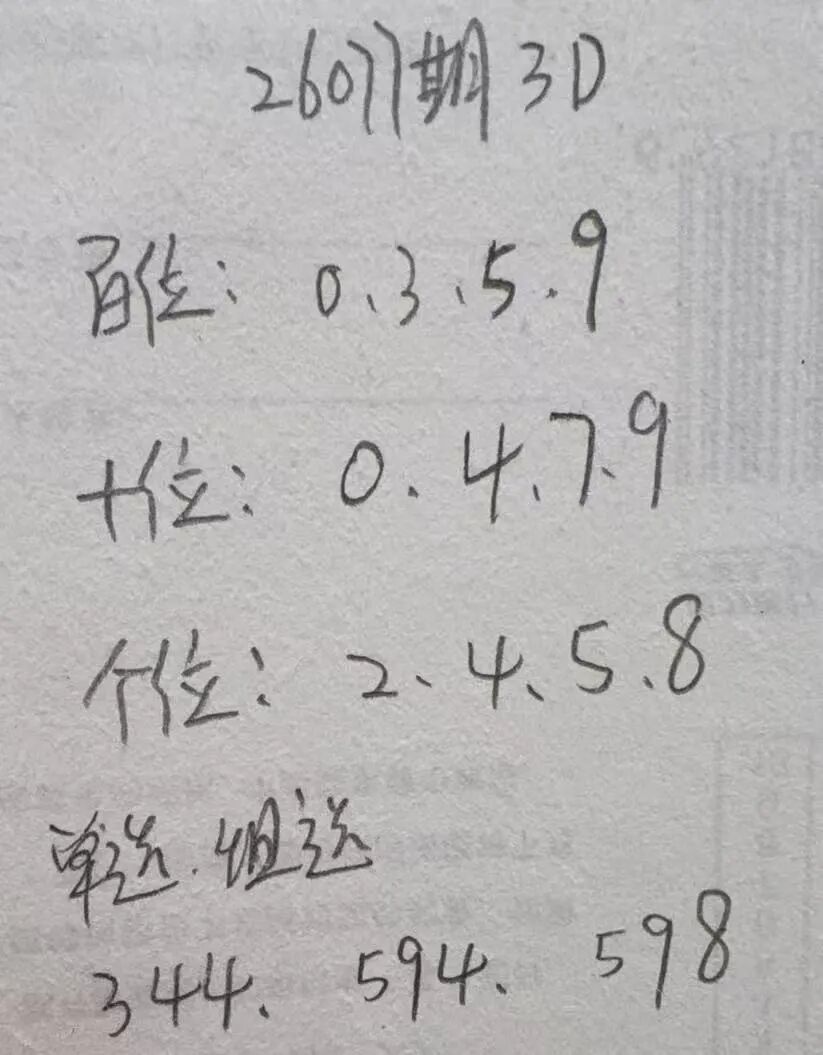 26077期 3D
百位: 0、3、5、9
十位: 0、4、7、9
个位: 2、4、5、8
单选、组选
344、 594、 598